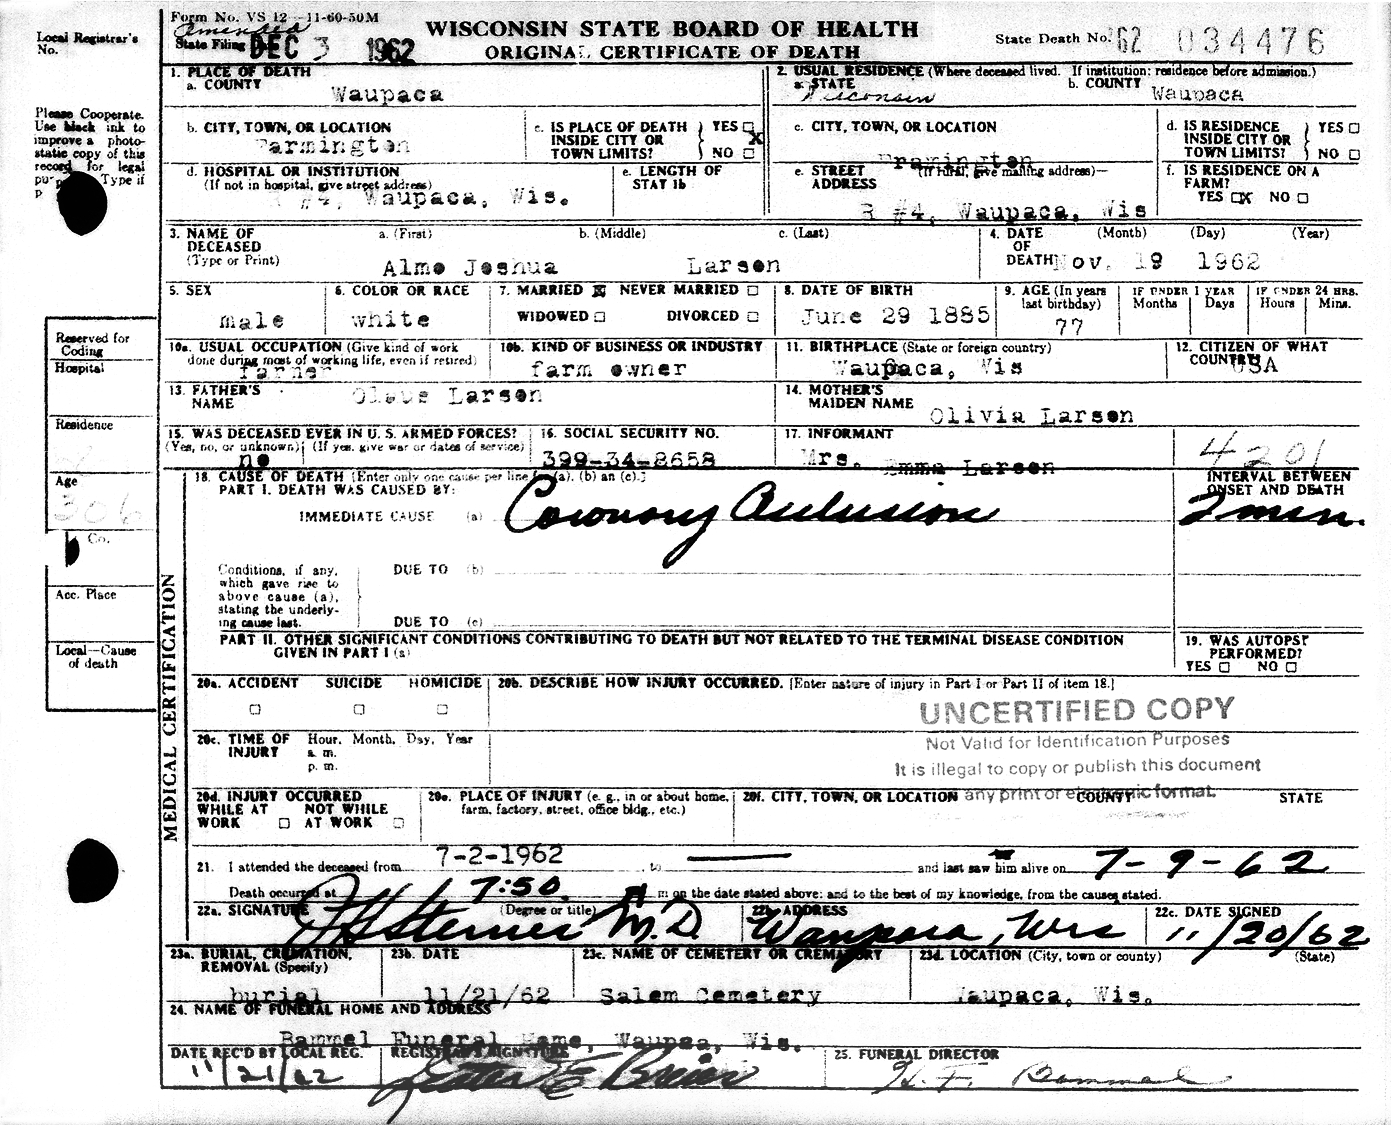 Form No. VS 12 -11-60-50M
WISCONSIN STATE BOARD OF HEALTH
ORIGINAL CERTIFICATE OF DEATH
Local Registrar's No.
Amended
State Filing DEC 3 1962
State Death No. '62 034476
Please Cooperate.
Use black ink to
improve a photo-
static copy of this
record for legal
Type if
1. PLACE OF DEATH
a. COUNTY Waupaca
2. USUAL RESIDENCE (Where deceased lived. If institution: residence before admission.)
a. STATE Wisconsin b. COUNTY Waupaca
b. CITY, TOWN, OR LOCATION Farmington
c. IS PLACE OF DEATH INSIDE CITY OR TOWN LIMITS? YES □ X NO □
c. CITY, TOWN, OR LOCATION Framington
d. IS RESIDENCE INSIDE CITY OR TOWN LIMITS? YES □ NO □
d. HOSPITAL OR INSTITUTION (If not in hospital, give street address) R #4, Waupaca, Wis.
e. LENGTH OF STAY 1b
e. STREET ADDRESS (If rural, give mailing address)— R #4, Waupaca, Wis
f. IS RESIDENCE ON A FARM? YES □X NO □
3. NAME OF DECEASED (Type or Print) a. (First) b. (Middle) c. (Last)
Almo Joshua Larson
4. DATE OF DEATH (Month) (Day) (Year)
Nov. 19 1962
5. SEX male
6. COLOR OR RACE white
7. MARRIED X NEVER MARRIED □
WIDOWED □ DIVORCED □
8. DATE OF BIRTH June 29 1885
9. AGE (In years last birthday) 77
IF UNDER 1 YEAR Months Days
IF UNDER 24 HRS. Hours Mins.
10a. USUAL OCCUPATION (Give kind of work done during most of working life, even if retired) Farmer
10b. KIND OF BUSINESS OR INDUSTRY farm owner
11. BIRTHPLACE (State or foreign country) Waupaca, Wis
12. CITIZEN OF WHAT COUNTRY? USA
13. FATHER'S NAME Olaus Larson
14. MOTHER'S MAIDEN NAME Olivia Larson
15. WAS DECEASED EVER IN U. S. ARMED FORCES? (Yes, no, or unknown) (If yes, give war or dates of service) no
16. SOCIAL SECURITY NO. 399-34-8658
17. INFORMANT Mrs. Emma Larson
4201
Reserved for Coding
Hospital
Residence
Age
306
Co.
Acc. Place
Local—Cause of death
MEDICAL CERTIFICATION
18. CAUSE OF DEATH [Enter only one cause per line for (a), (b) an (c).]
PART I. DEATH WAS CAUSED BY:
IMMEDIATE CAUSE (a) Coronary Occlusion
INTERVAL BETWEEN ONSET AND DEATH
2 min.
Conditions, if any, which gave rise to above cause (a), stating the underlying cause last.
DUE TO (b)
DUE TO (c)
PART II. OTHER SIGNIFICANT CONDITIONS CONTRIBUTING TO DEATH BUT NOT RELATED TO THE TERMINAL DISEASE CONDITION
GIVEN IN PART I (a)
19. WAS AUTOPSY PERFORMED? YES □ NO □
20a. ACCIDENT SUICIDE HOMICIDE
20b. DESCRIBE HOW INJURY OCCURRED. [Enter nature of injury in Part I or Part II of item 18.]
UNCERTIFIED COPY
Not Valid for Identification Purposes
It is illegal to copy or publish this document
any print or electronic format.
20c. TIME OF INJURY Hour, Month, Day, Year
a. m.
p. m.
20d. INJURY OCCURRED
WHILE AT WORK □ NOT WHILE AT WORK □
20e. PLACE OF INJURY (e. g., in or about home, farm, factory, street, office bldg., etc.)
20f. CITY, TOWN, OR LOCATION COUNTY STATE
21. I attended the deceased from 7-2-1962 to — and last saw him alive on 7-9-62
Death occurred at 7:50 m on the date stated above; and to the best of my knowledge, from the causes stated.
22a. SIGNATURE (Degree or title) M.D.
22b. ADDRESS Waupaca, Wis
22c. DATE SIGNED 11/20/62
23a. BURIAL, CREMATION, REMOVAL (Specify) burial
23b. DATE 11/21/62
23c. NAME OF CEMETERY OR CREMATORY Salem Cemetery
23d. LOCATION (City, town or county) (State) Waupaca, Wis.
24. NAME OF FUNERAL HOME AND ADDRESS
Bammel Funeral Home, Waupaa, Wis.
DATE REC'D BY LOCAL REG. 11/21/62
REGISTRAR'S SIGNATURE
25. FUNERAL DIRECTOR H. F. Bammel